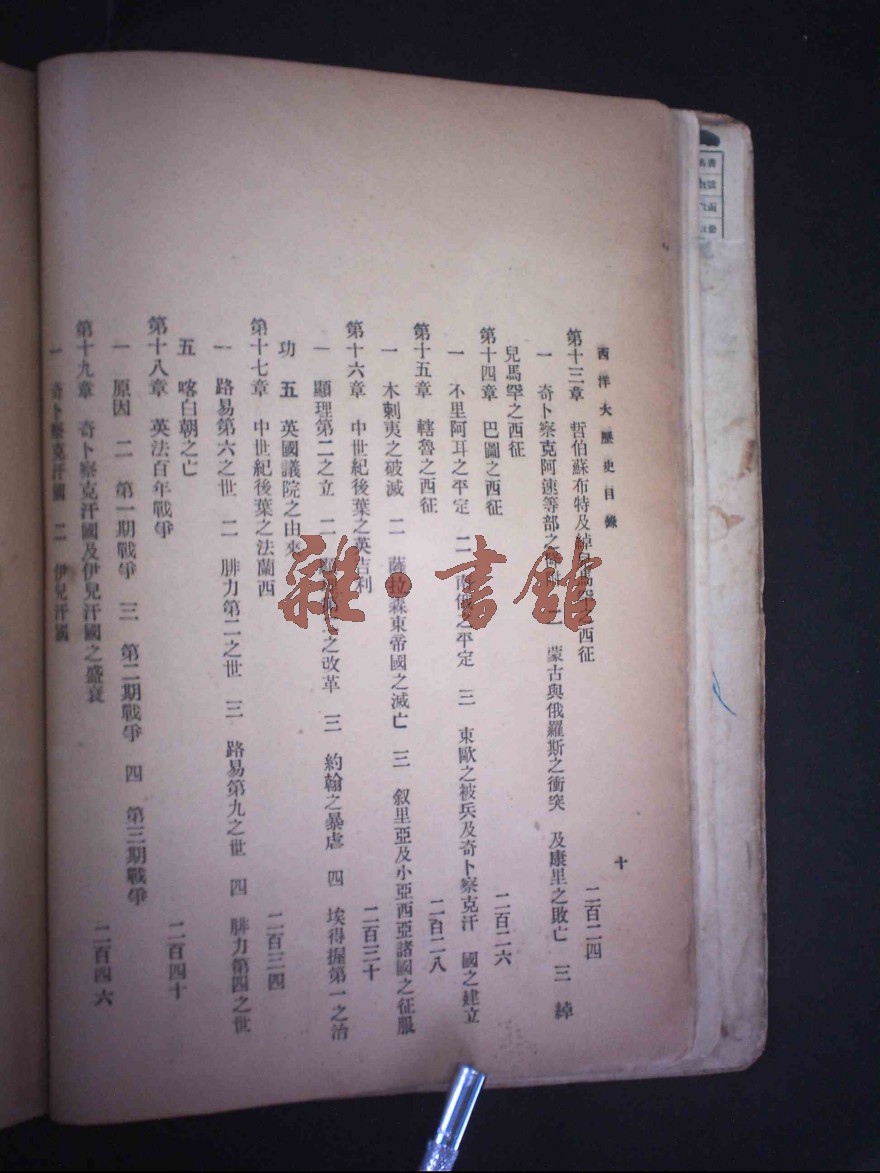 西洋大歷史目錄
十
第十三章 哲伯蘇布特及綽兒馬罕之西征 二百二四
一 奇卜察克阿速等部之 二 蒙古與俄羅斯之衝突 及康里之敗亡 三 綽
兒馬罕之西征
第十四章 巴圖之西征 二百二六
一 不里阿耳之平定 二 南俄之平定 三 東歐之被兵及奇卜察克汗 國之建立
第十五章 轄魯之西征 二百二八
一 木剌夷之破滅 二 薩拉森東帝國之滅亡 三 叙里亞及小亞西亞諸國之征服
第十六章 中世紀後葉之英吉利 二百三十
一 顯理第二之立 二 之改革 三 約翰之暴虐 四 埃得握第一之治
功 五 英國議院之由來
第十七章 中世紀後葉之法蘭西 二百三四
一 路易第六之世 二 腓力第二之世 三 路易第九之世 四 腓力第四之世
五 喀白朝之亡
第十八章 英法百年戰爭 二百四十
一 原因 二 第一期戰爭 三 第二期戰爭 四 第三期戰爭
第十九章 奇卜察克汗國及伊兒汗國之盛衰 二百四六
一 奇卜察克汗國 二 伊兒汗國
雜·書館